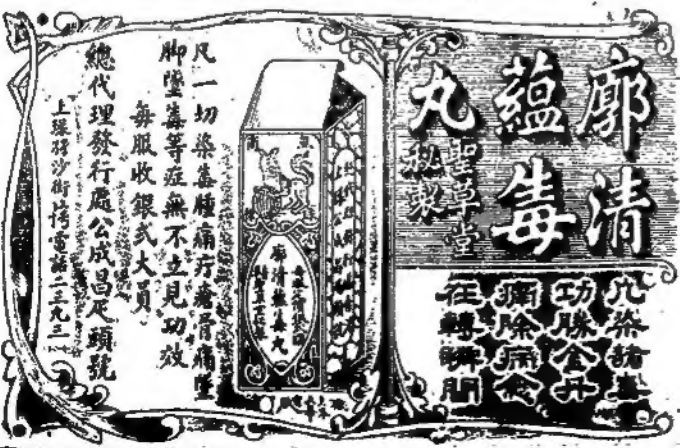 廓清
蘊毒
丸
聖草堂
秘製
凡染諸毒
功勝金丹
痛除病愈
在轉瞬間
凡一切染毒腫痛疔瘡骨痛墜
脚墮毒等症無不立見功效
每服收銀弍大員
總代理發行處公成昌疋頭號
上環孖沙街 電話二三九三
廓清蘊毒丸